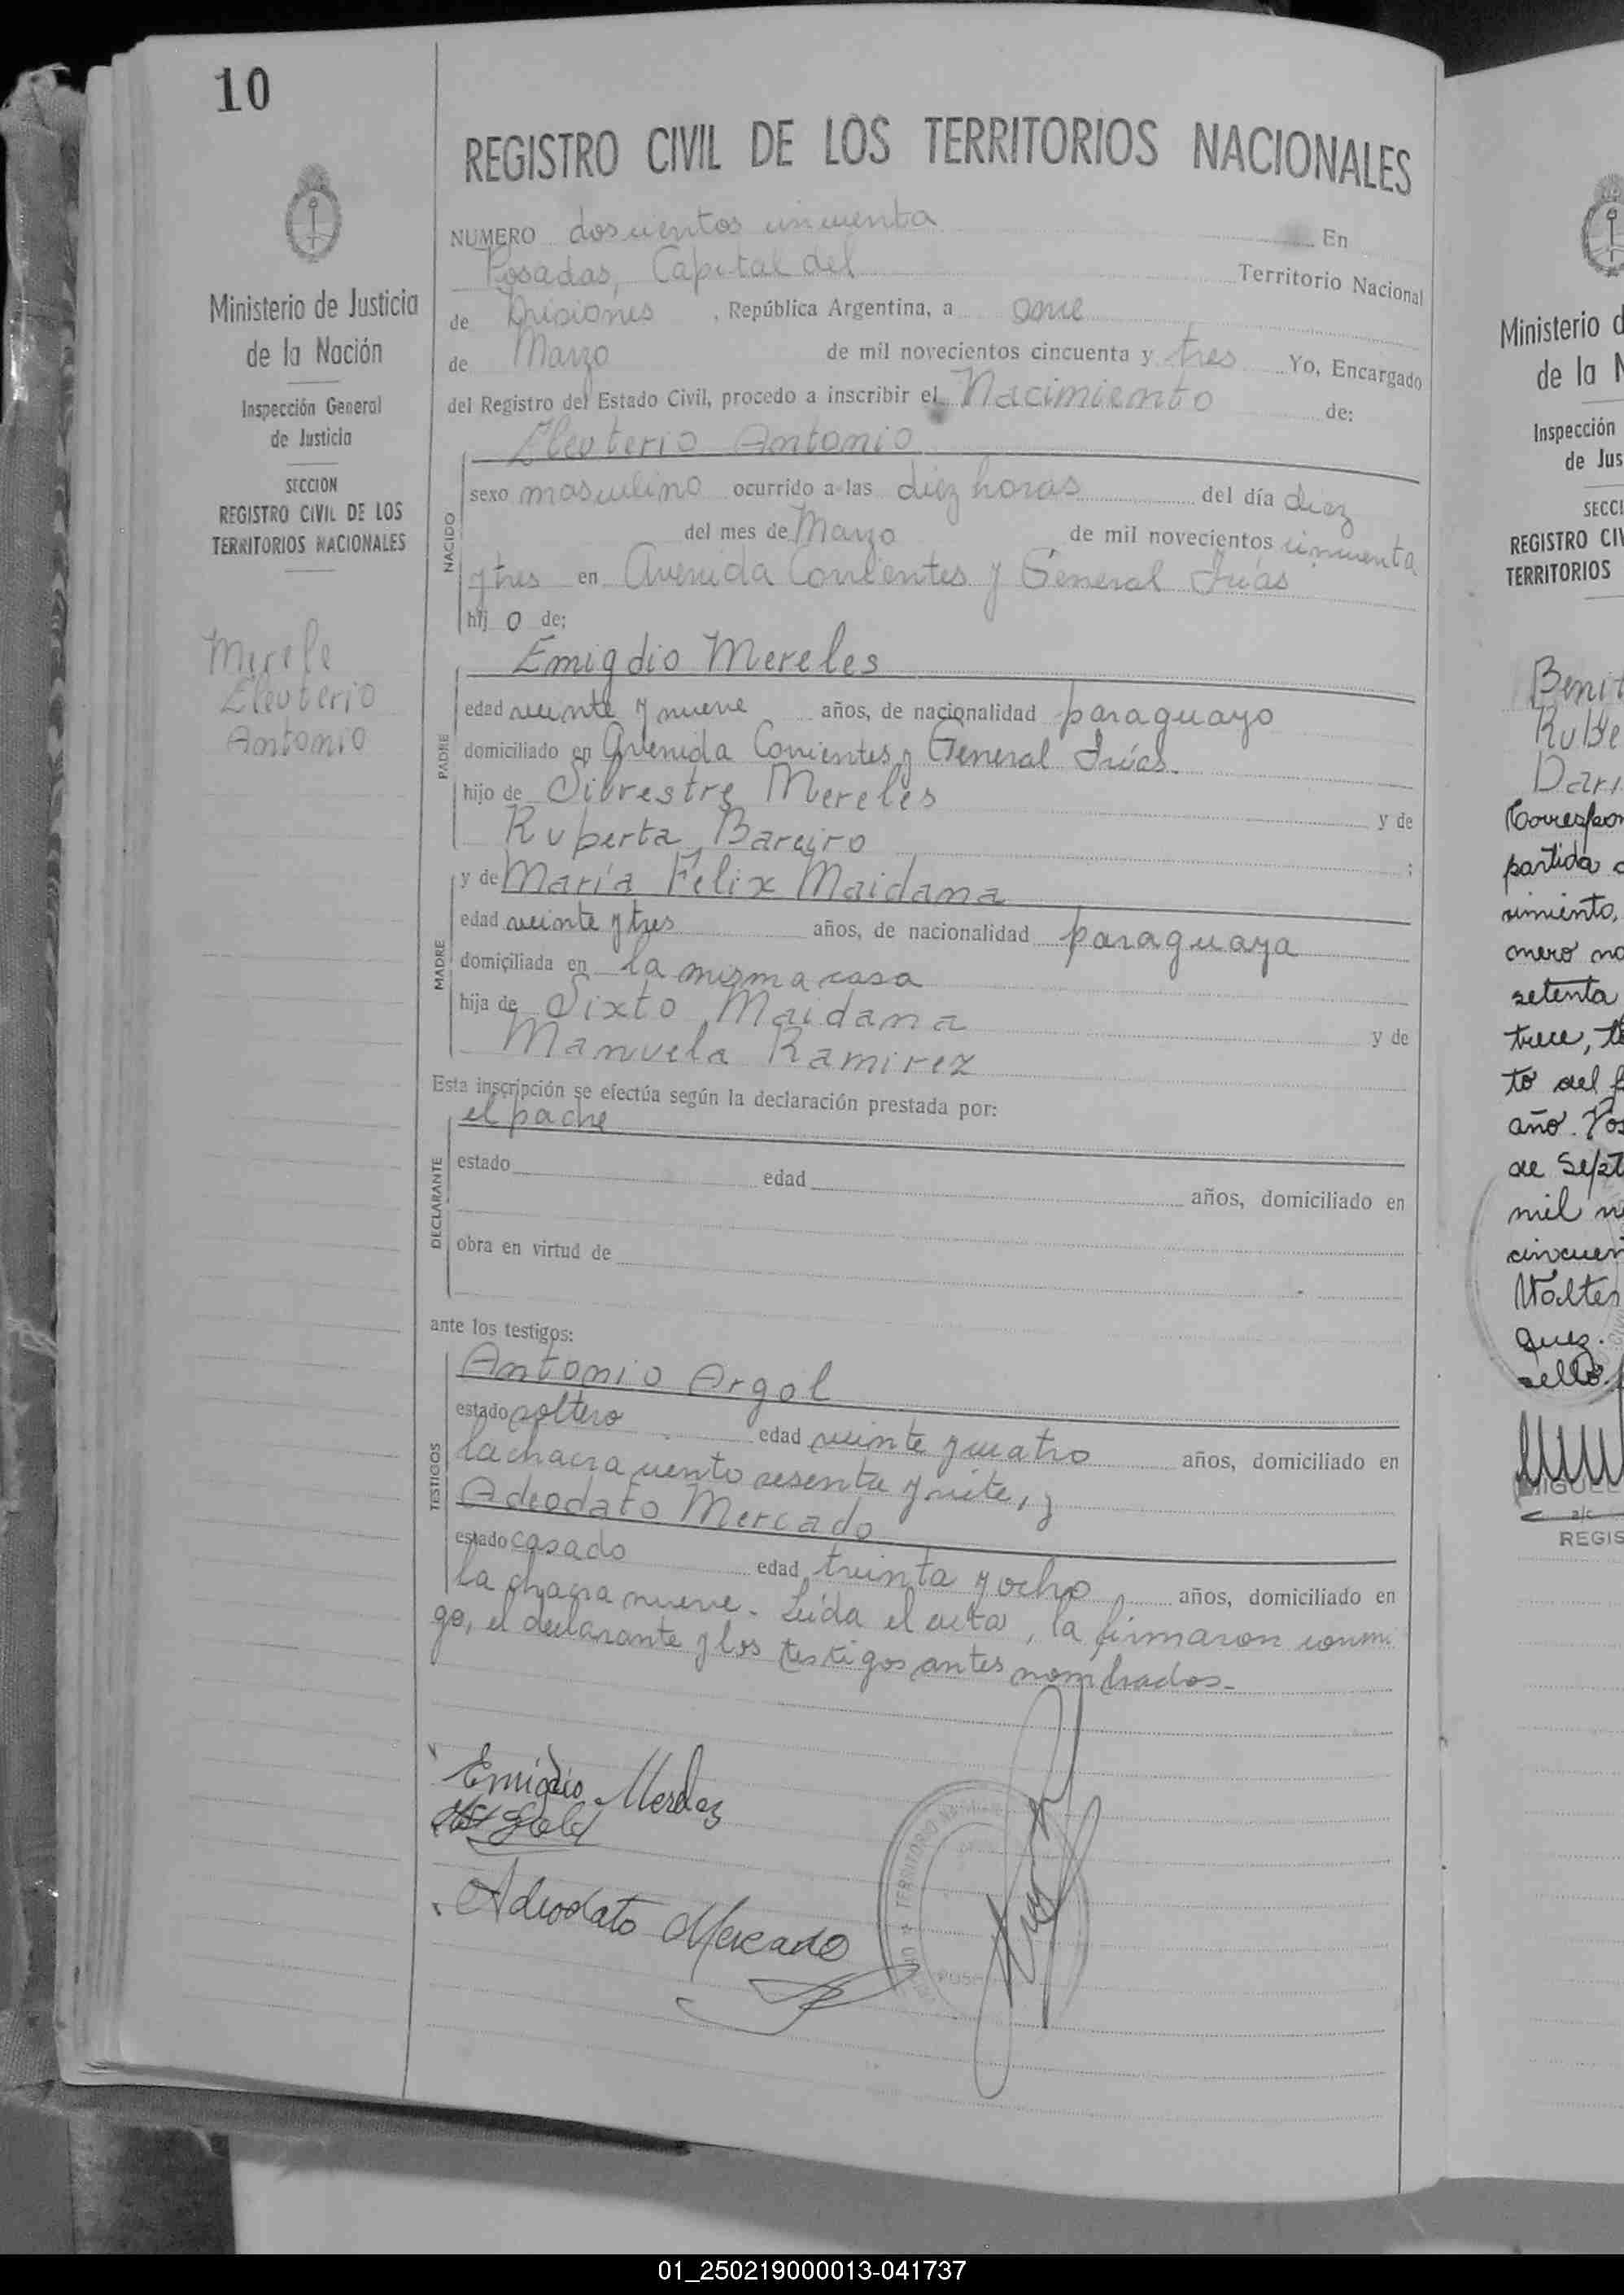 10
REGISTRO CIVIL DE LOS TERRITORIOS NACIONALES
Ministerio de Justicia
de la Nación
Inspección General
de Justicia
SECCION
REGISTRO CIVIL DE LOS
TERRITORIOS NACIONALES
Merele
Eleuterio
Antonio
NUMERO doscientos cincuenta En
Posadas, Capital del Territorio Nacional
de Misiones, República Argentina, a once
de Marzo de mil novecientos cincuenta y tres Yo, Encargado
del Registro del Estado Civil, procedo a inscribir el Nacimiento de:
Eleuterio Antonio
NACIDO
sexo masculino ocurrido a las diez horas del día diez
del mes de Marzo de mil novecientos cincuenta
y tres en Avenida Corrientes y General Frías
hij o de:
Emigdio Mereles
PADRE
edad veinte y nueve años, de nacionalidad paraguayo
domiciliado en Avenida Corrientes y General Frías.
hijo de Silvestre Mereles y de
Ruperta Bareiro ;
y de María Felix Maidana
MADRE
edad veinte y tres años, de nacionalidad paraguaya
domiciliada en la misma casa
hija de Sixto Maidana y de
Manuela Ramirez
Esta inscripción se efectúa según la declaración prestada por:
el padre
DECLARANTE
estado edad años, domiciliado en
obra en virtud de
ante los testigos:
Antonio Argol
TESTIGOS
estado soltero edad veinte y cuatro años, domiciliado en
la chacra ciento sesenta y siete, y
Adeodato Mercado
estado casado edad treinta y ocho años, domiciliado en
la chacra nueve. Leída el acta, la firmaron conmi
go, el declarante y los testigos antes nombrados.
Emigdio Mereles
Adeodato Mercado
TERRITORIO
Ministerio d
de la N
Inspección
de Jus
SECCI
REGISTRO CIV
TERRITORIOS
Benit
Rube
Dari
Correspon
partida
cimiento,
mero no
setenta
trece, to
to del f
año. Pos
de Sept
mil n
cincuen
Walter
quez.
sello.
MIGUEL
a/c
REGIS
01_250219000013-041737